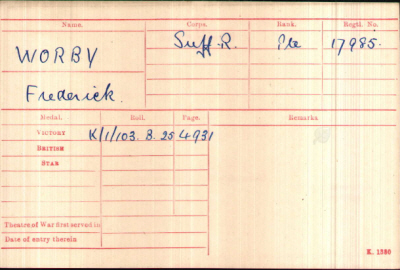 Name. Corps. Rank. Regtl. No.
WORBY Suff. R. Pte 17985.
Frederick.
Medal. Roll. Page. Remarks
VICTORY K/1/103. B. 25 4931
BRITISH
STAR
Theatre of War first served in
Date of entry therein
K. 1380